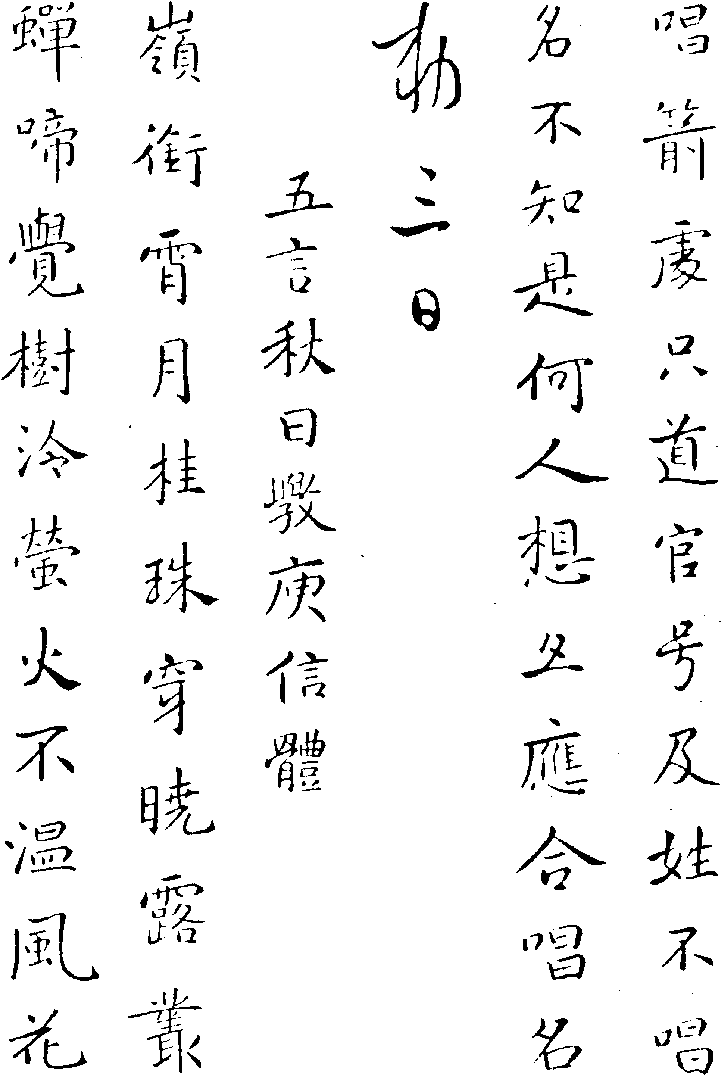 唱箭處只道官号及姓不唱
名不知是何人想玄應合唱名
勅三日
五言秋日斆庾信體
嶺銜宵月桂珠穿曉露叢
蟬啼覺樹冷螢火不温風花